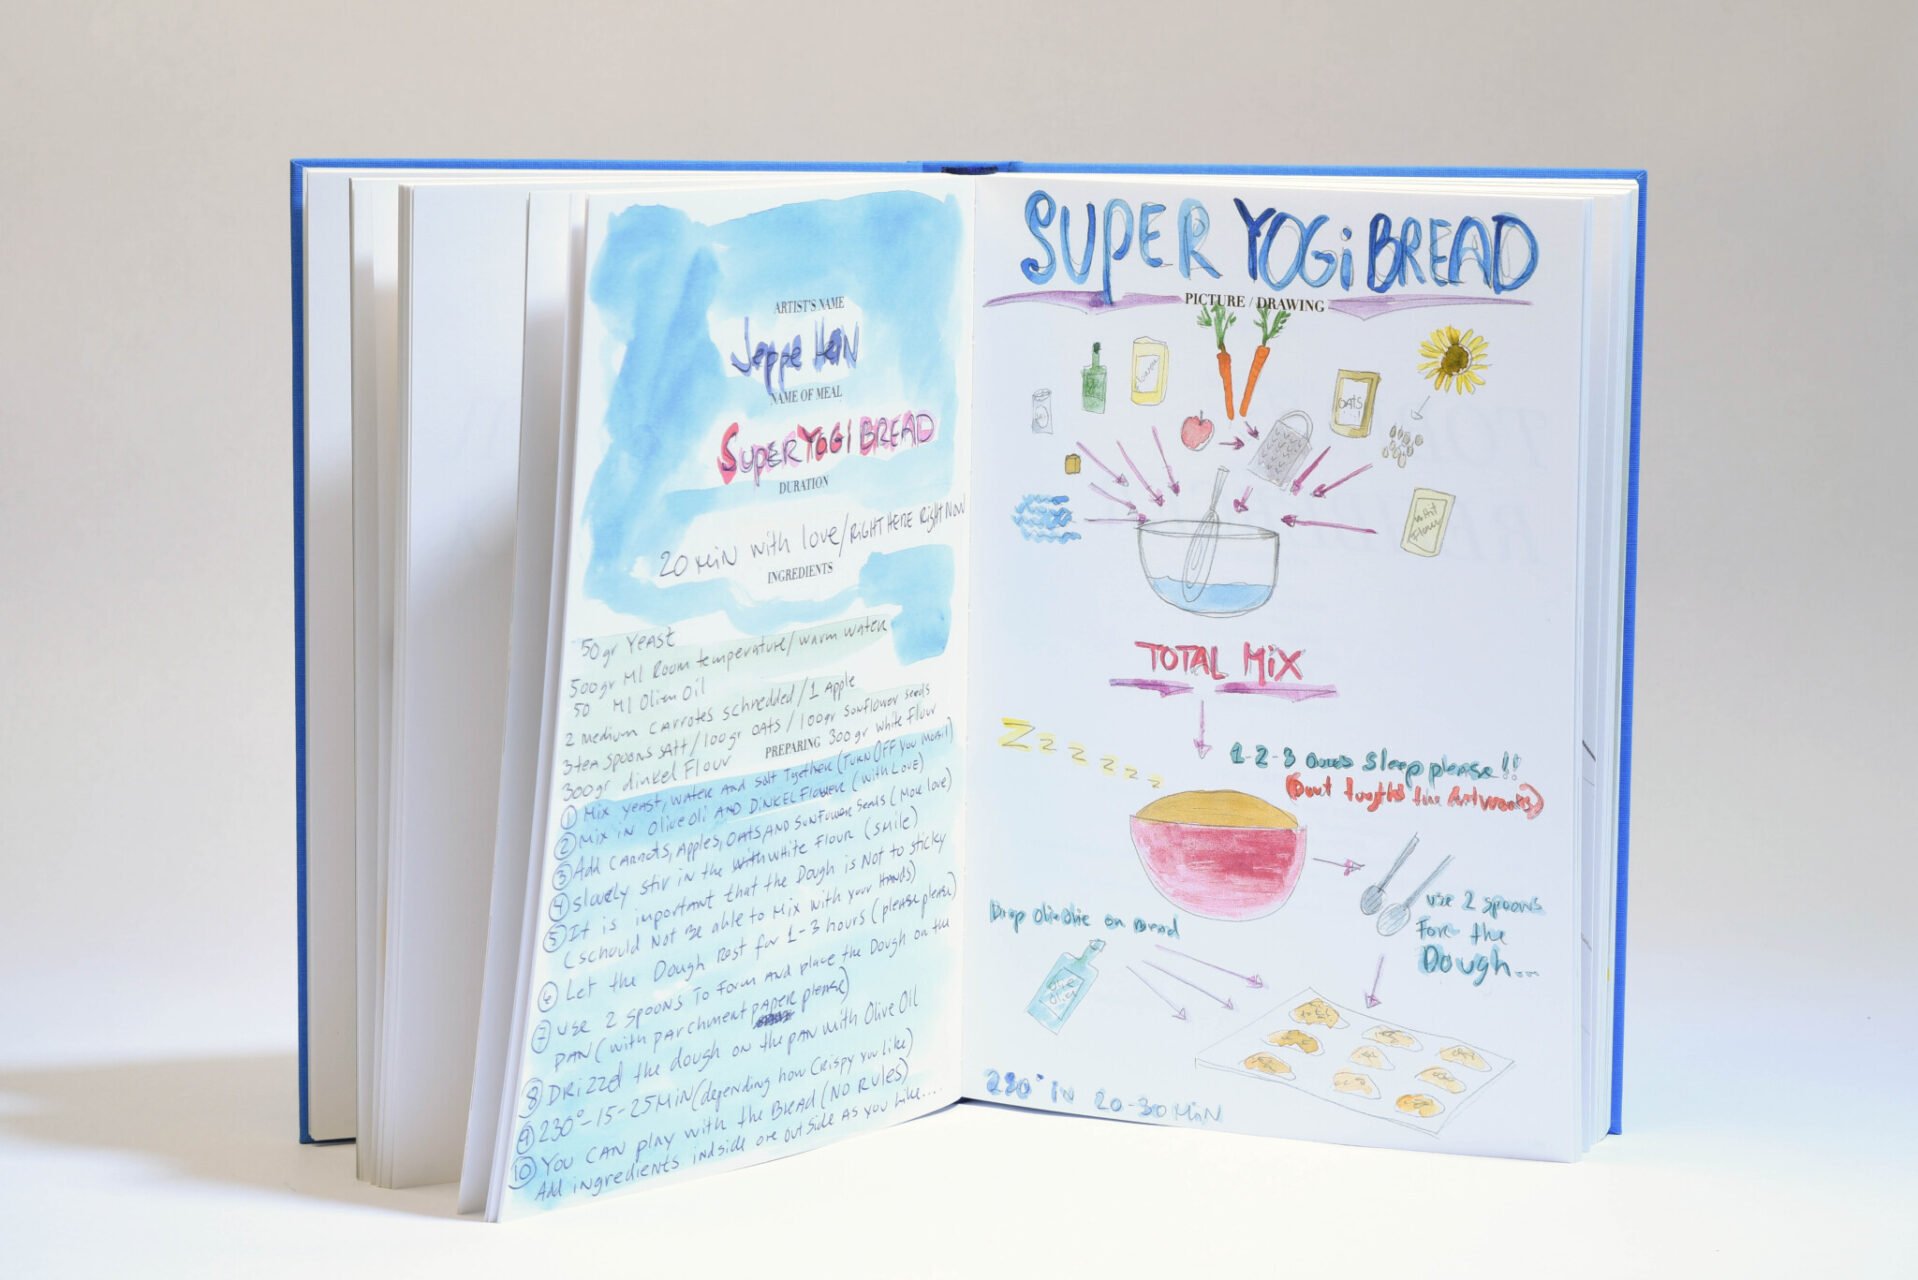 ARTIST'S NAME
Jeppe HeiN
NAME OF MEAL
SuperYOGI BREAD
DURATION
20 MiN with love/RIGHT HERE RigHt NOW
INGREDIENTS
50gr YEAST
500gr Ml Room temperature/warm water
50 Ml Olien Oil
2 medium CARROTES schredded/1 Apple
3 teA spoons sAlt/100gr OATS/100gr sunflower seeds
300gr dinkel Flour
PREPARING
300gr white Flour
① Mix YEAST, WATER AND SAlt Together (TURN OFF you Mobil)
② Mix iN OliveOli AND DiNKEL Flower (With LOVE)
③ Add CARROTS, Apples, OATS AND SUNFlower Seeds (More love)
④ slowly stir in the with WHITE FlOUR (SMilE)
⑤ It is important that the Dough is Not to sticky
(schould Not Be able to Mix with your HANDS)
⑥ Let the Dough Rest for 1-3 hours (please please)
⑦ Use 2 spoons To Form AND place the Dough on the
PAN (with pArchment PAPER please)
⑧ DRizzed the dough on the pAN with Olive Oil
⑨ 230°-15-25MiN (depending how Crispy you like)
⑩ YOU CAN play with the BREAD (NO RULES)
Add ingredients indside ore outside As you Like....
SUPER YOGi BREAD
PICTURE / DRAWING
OATS
whit Flour
TOTAL MiX
Z z z z z z z
1-2-3 Oours Sleep please!!
Drop Olieolie on Bread
use 2 spoons
Fore the
Dough...
Olive
Olien
230° iN 20-30 MiN